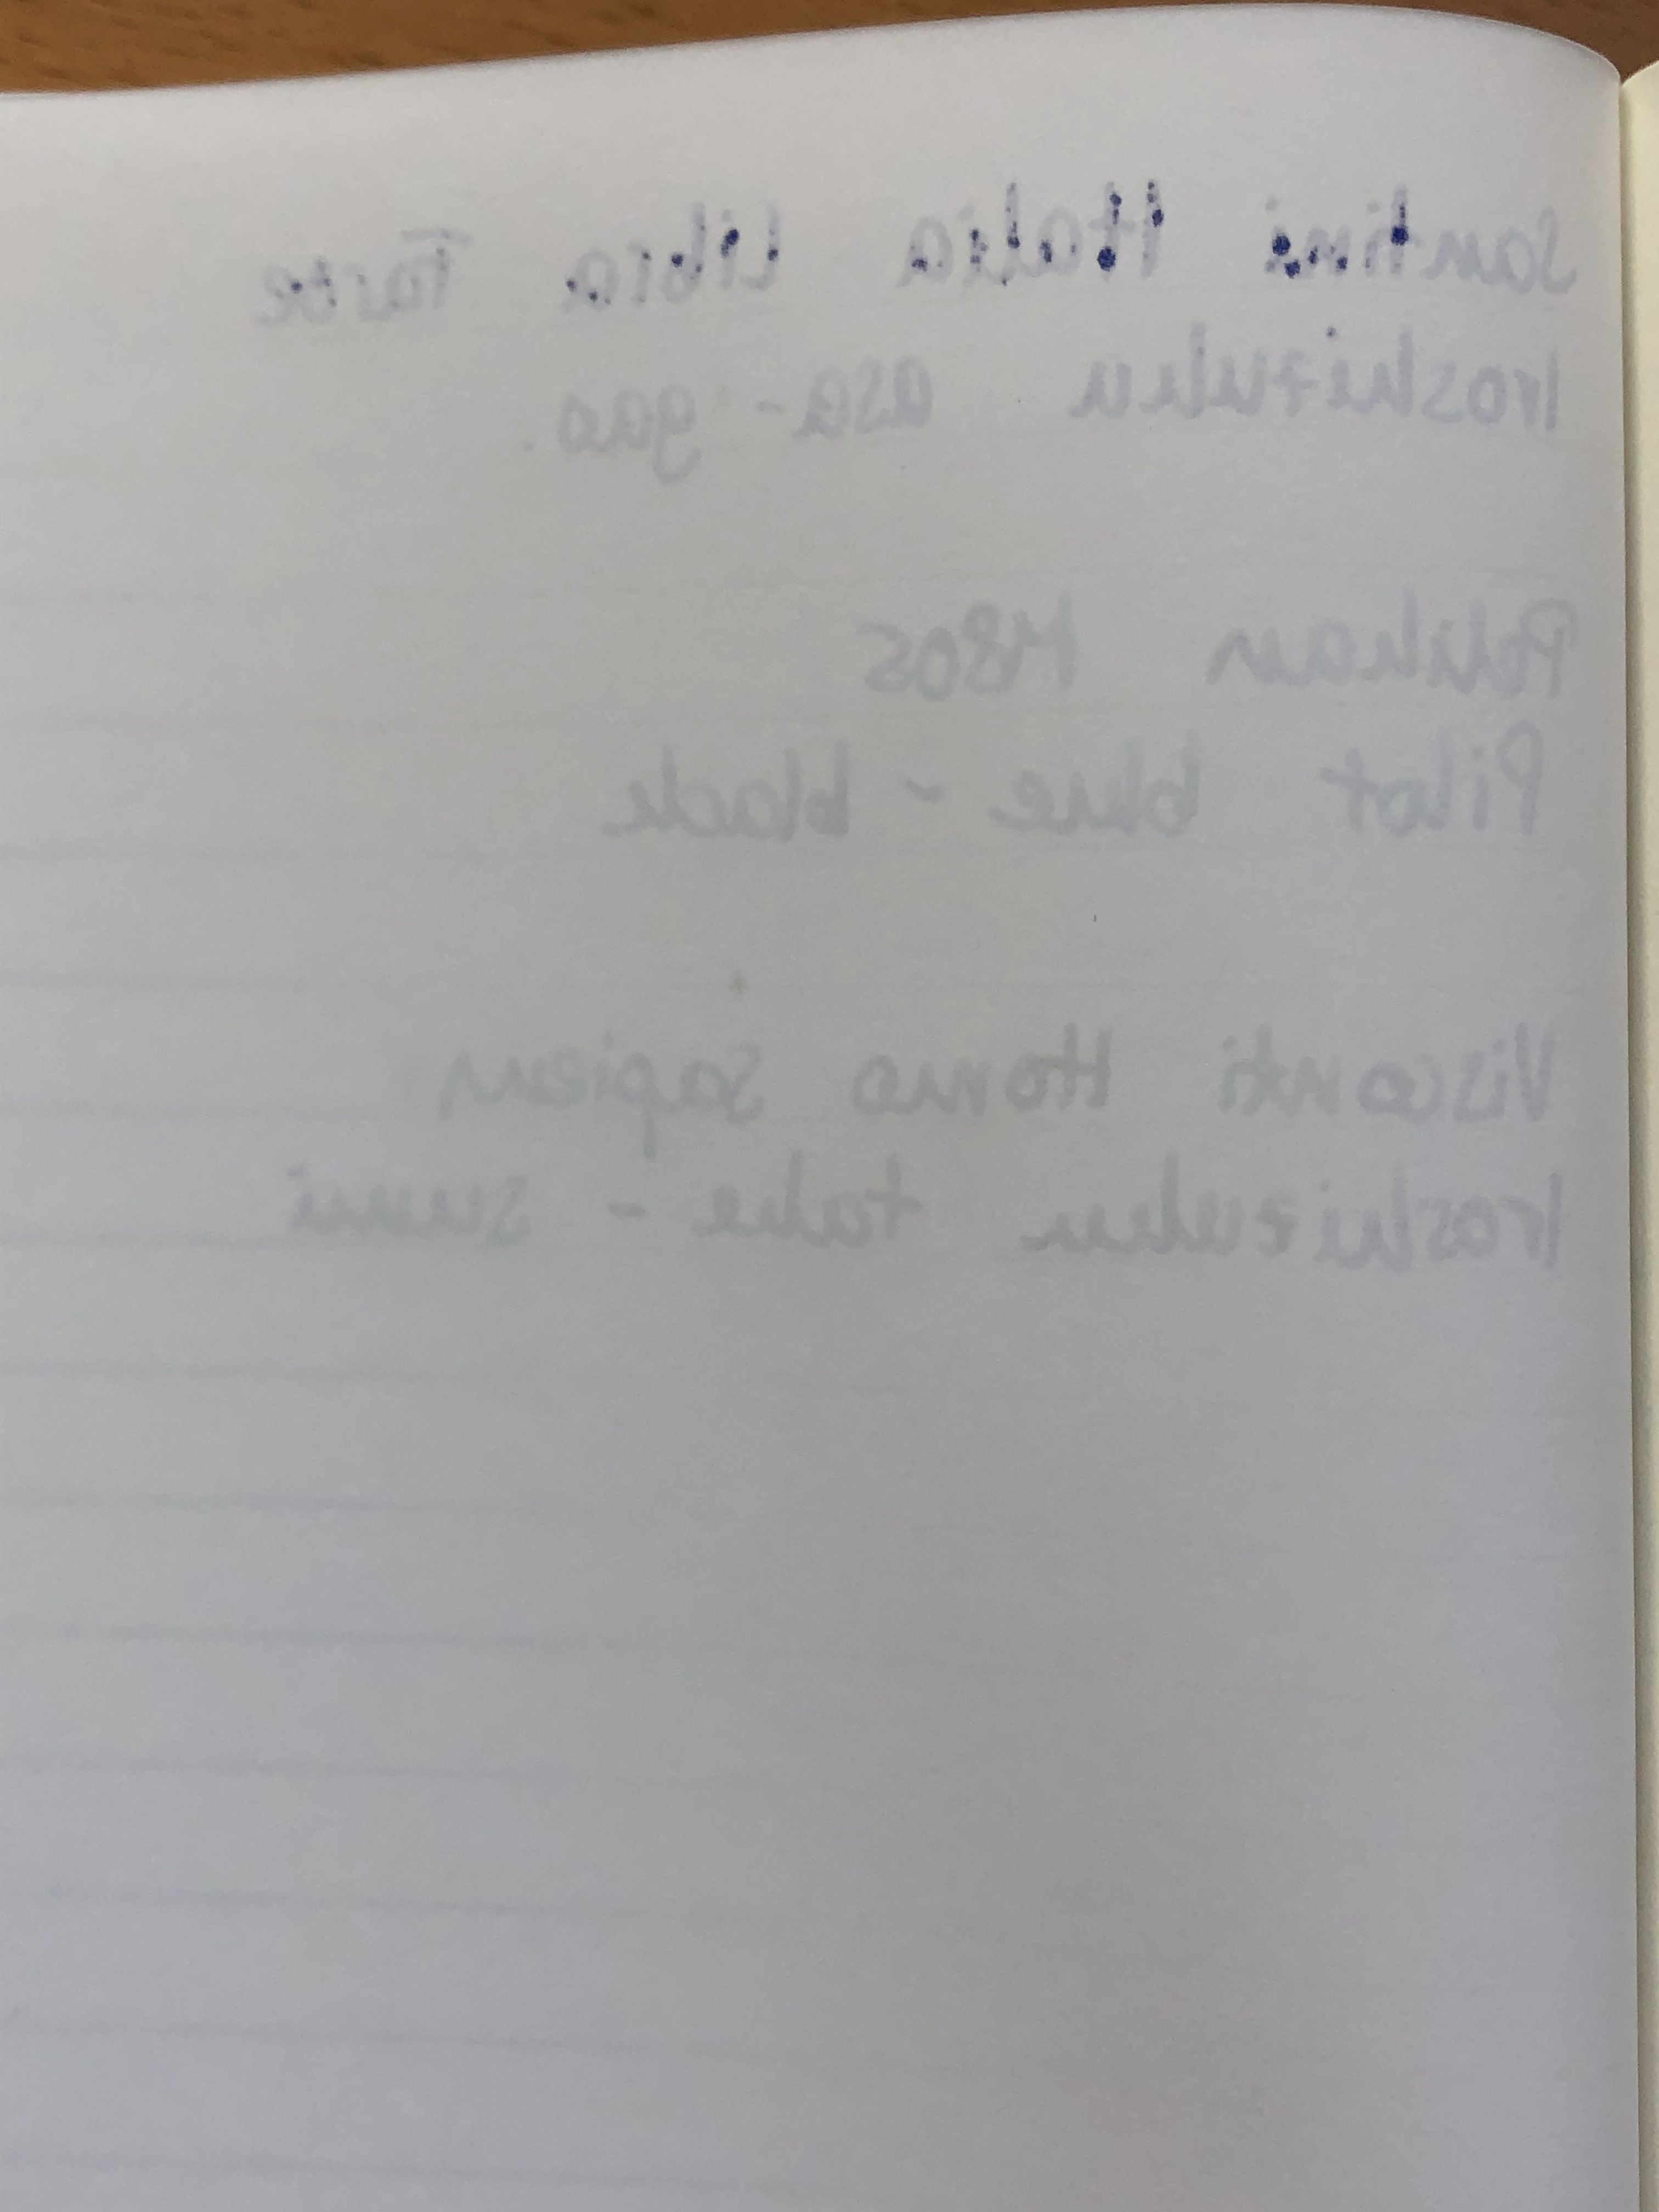 Santini Italia Libra Fuoco
Iroshizuku asa-gao.
Pelikan M805
Pilot blue-black
Visconti Homo Sapiens
Iroshizuku take-sumi